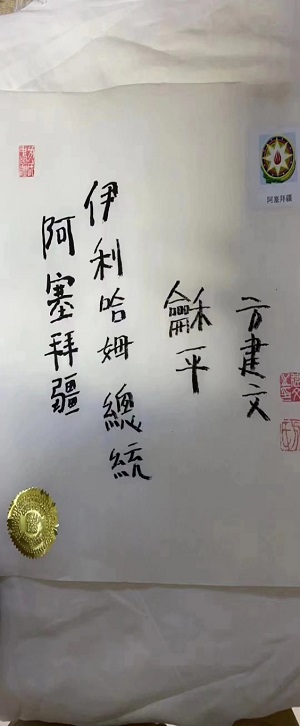 阿塞拜疆
伊利哈姆總統
龢平
方建文
阿塞拜疆